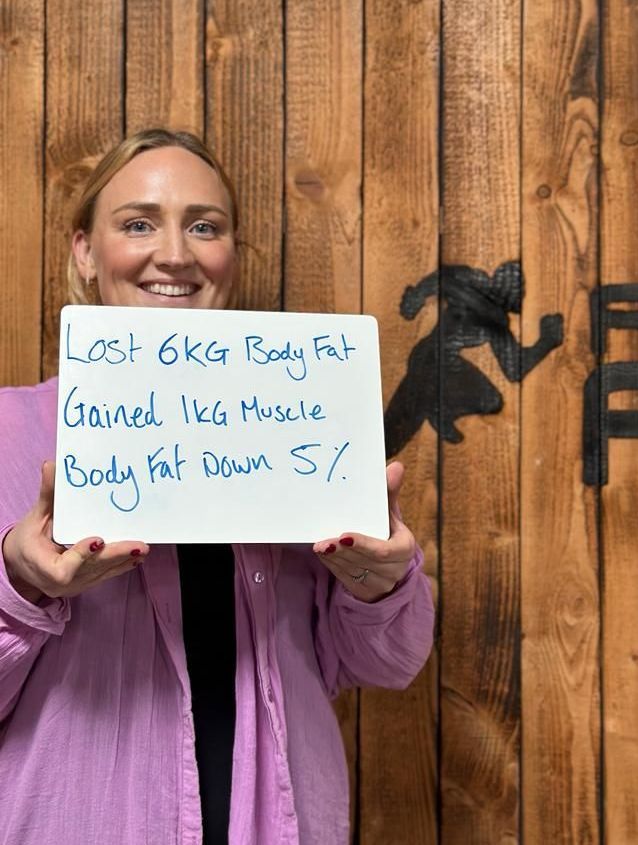 Lost 6KG Body Fat
Gained 1KG Muscle
Body Fat Down 5%